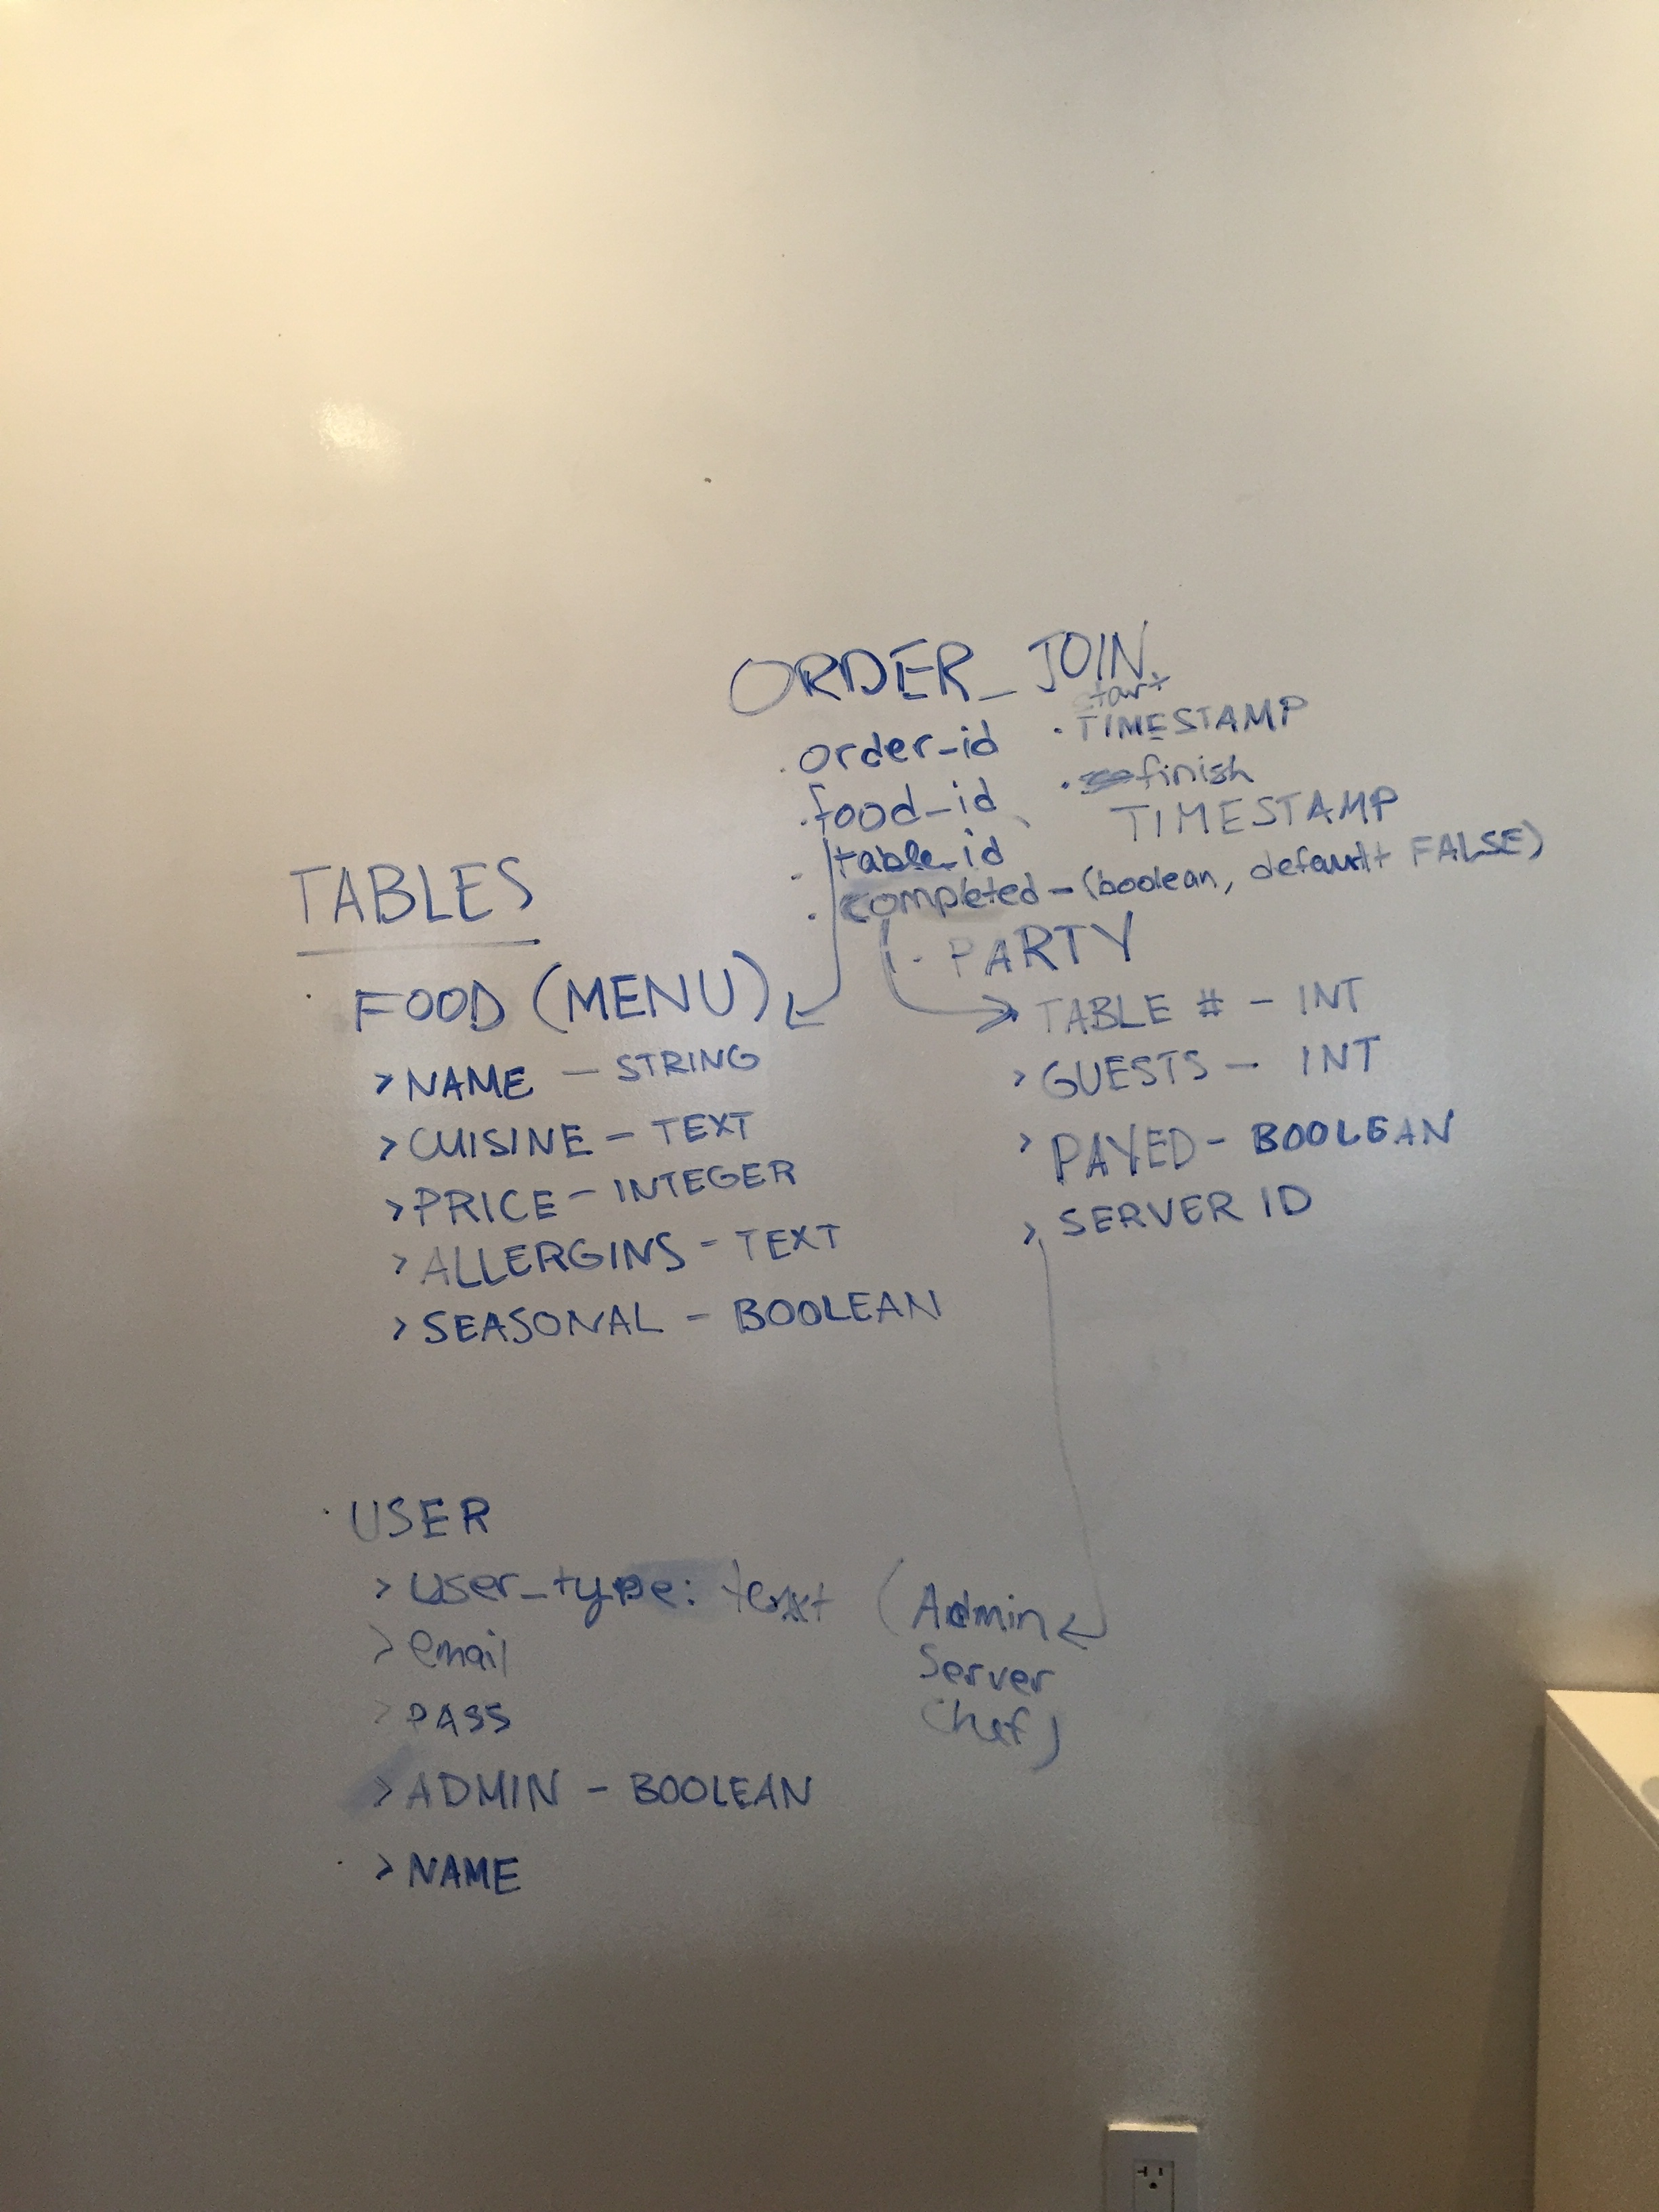 ORDER_JOIN
. order_id
. food_id
. table_id
. completed - (boolean, default FALSE)
start
. TIMESTAMP
. finish
TIMESTAMP
TABLES
. FOOD (MENU)
> NAME - STRING
> CUISINE - TEXT
> PRICE - INTEGER
> ALLERGINS - TEXT
> SEASONAL - BOOLEAN
. PARTY
TABLE # - INT
> GUESTS - INT
> PAYED - BOOLEAN
> SERVER ID
. USER
> user_type: text (Admin
Server
Chef)
> email
> PASS
> ADMIN - BOOLEAN
> NAME